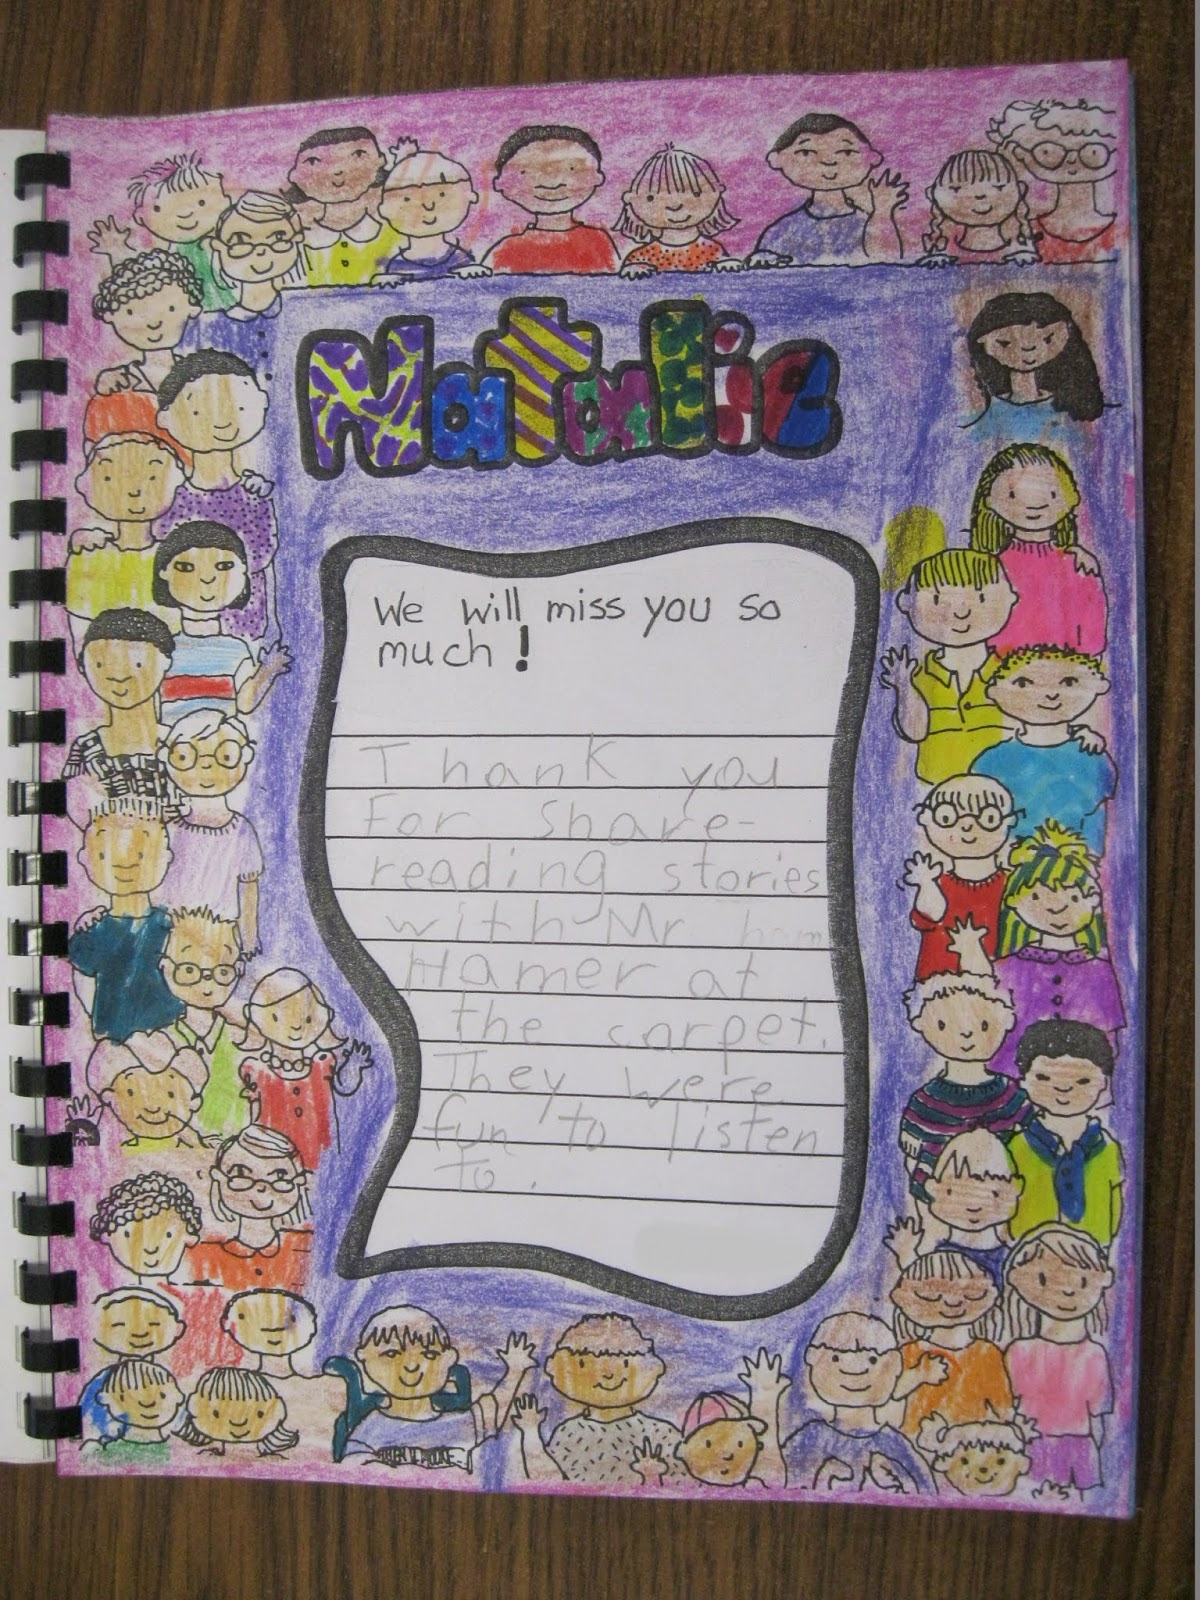 Natalie
We will miss you so
much!
Thank you
For share-
reading stories
with Mr ham
Hamer at
the carpet.
They were
fun to listen
to.